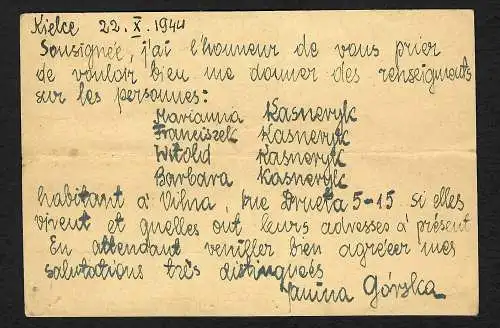 Kielce 22. X. 1944
Sousignée, j'ai l'honneur de vous prier
de vouloir bien me donner des renseigments
sur les personnes:
Marianna Kasneryk
Franciszek Kasneryk
Witold Kasneryk
Barbara Kasneryk
habitant à Vilna, rue 5-15 si elles
vivent et quelles ont leurs adresses à présent
En attendant bien agréer mes
salutations très distinguées
Janina Górska